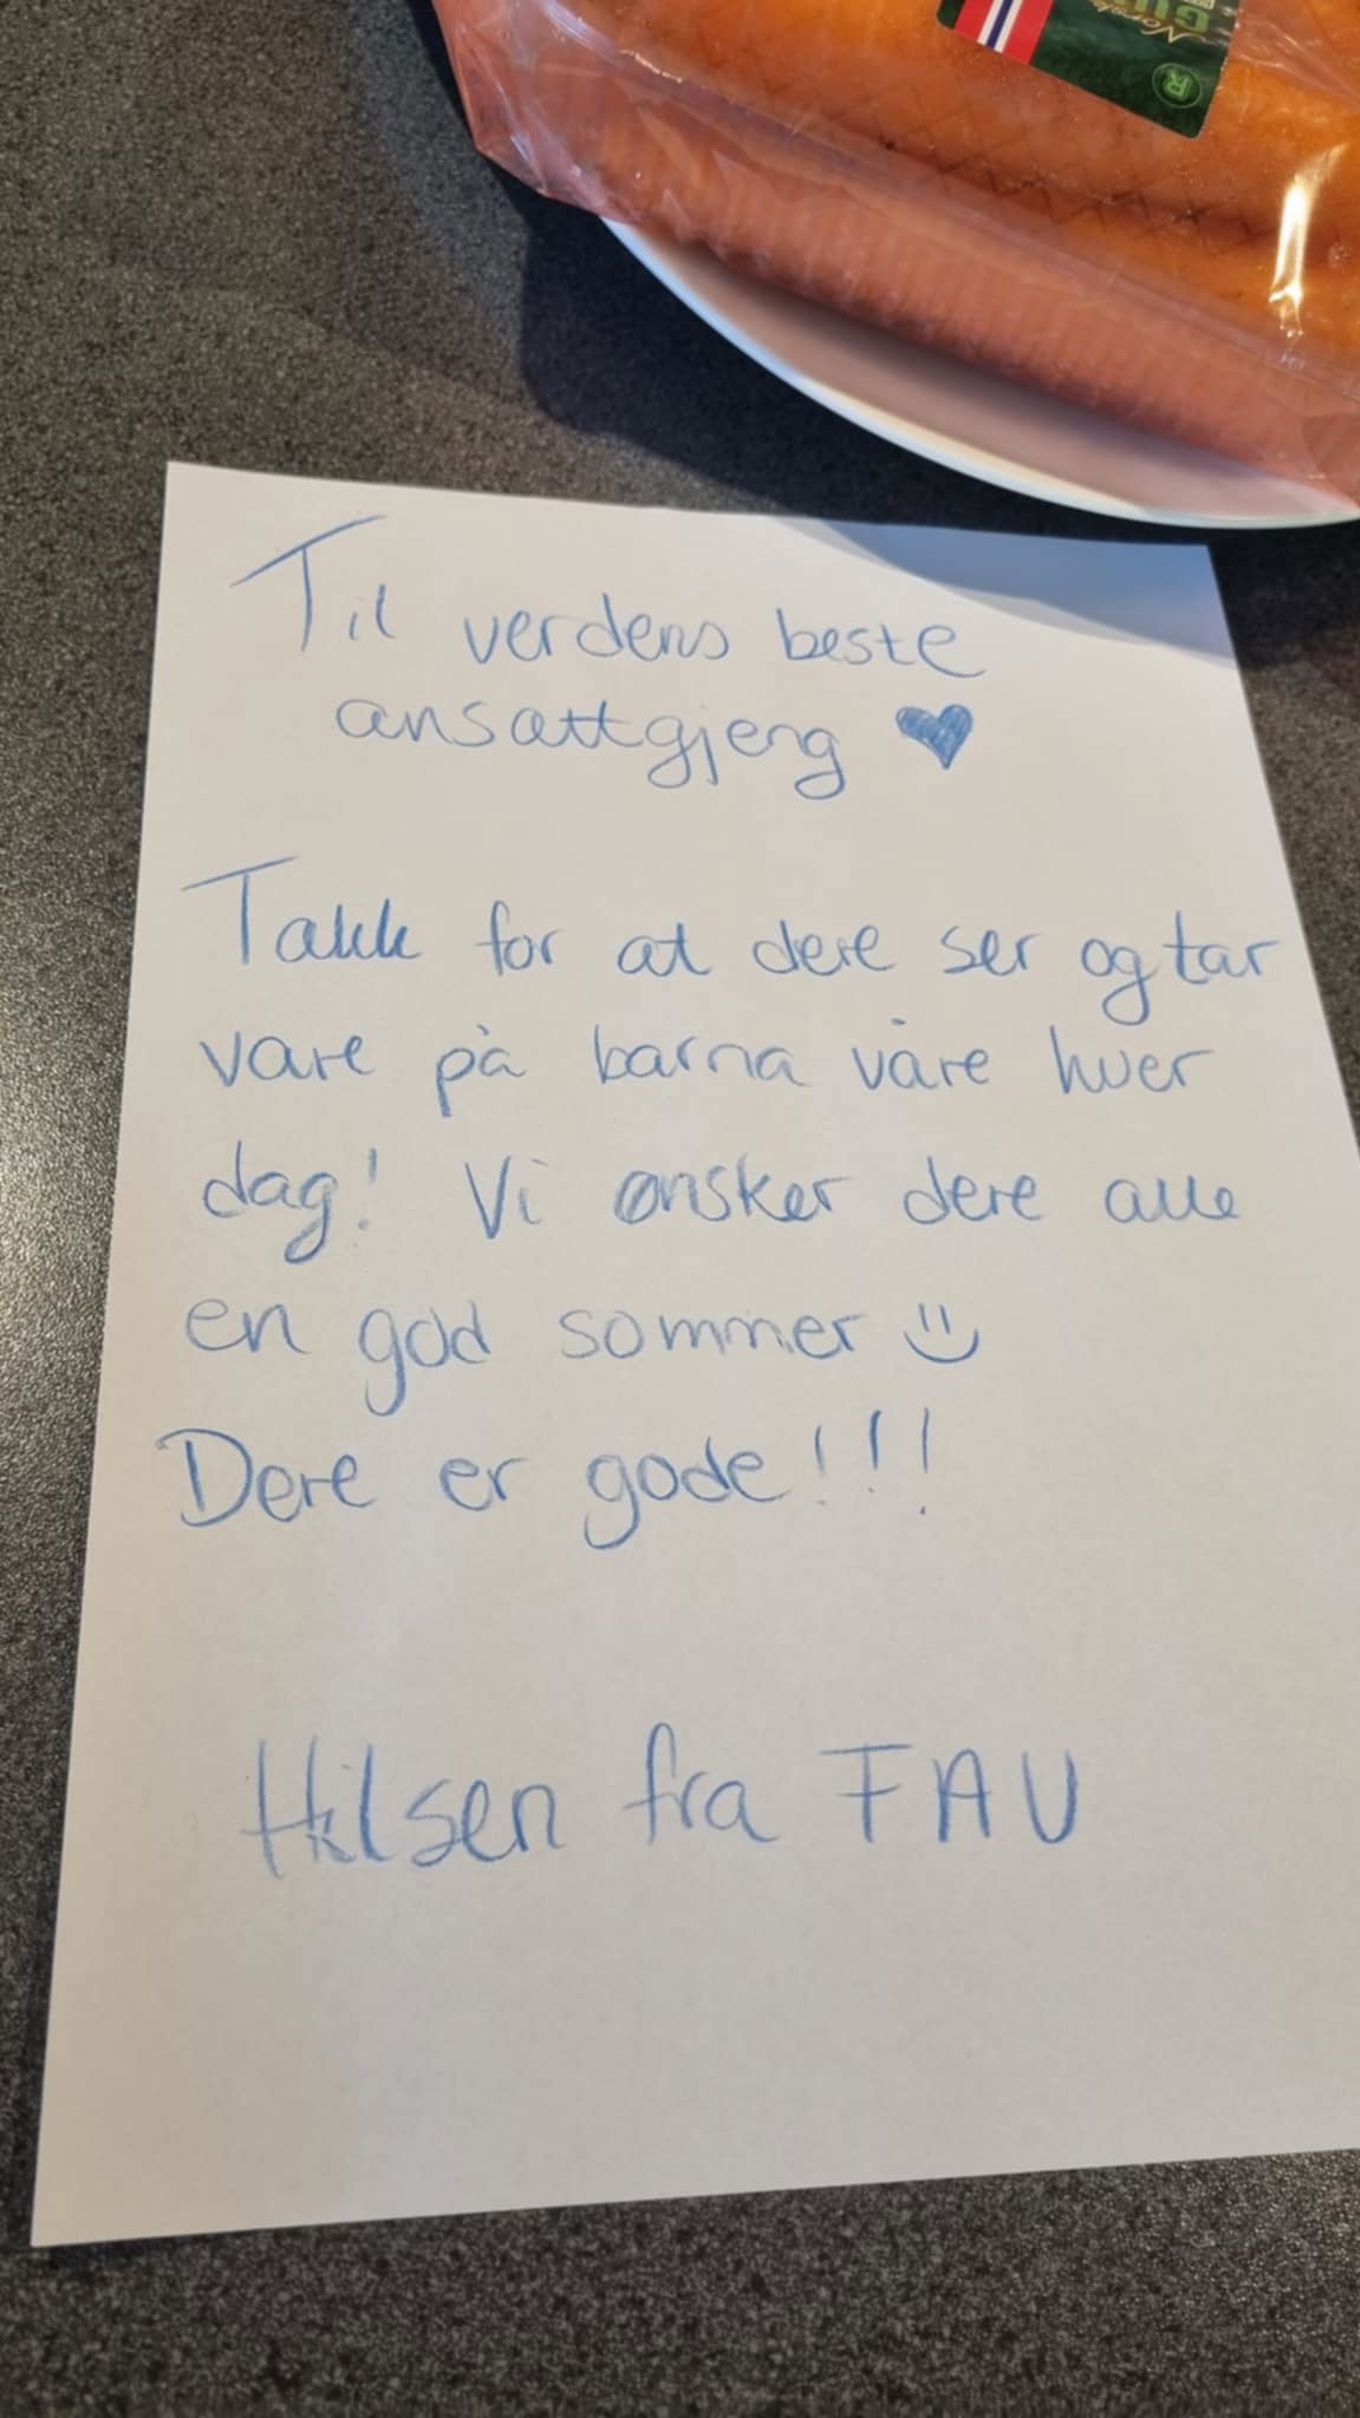 Norsk
GU
R
Til verdens beste
ansattgjeng ♥
Takk for at dere ser og tar
vare på barna våre hver
dag! Vi ønsker dere alle
en god sommer :)
Dere er gode!!!
Hilsen fra FAU